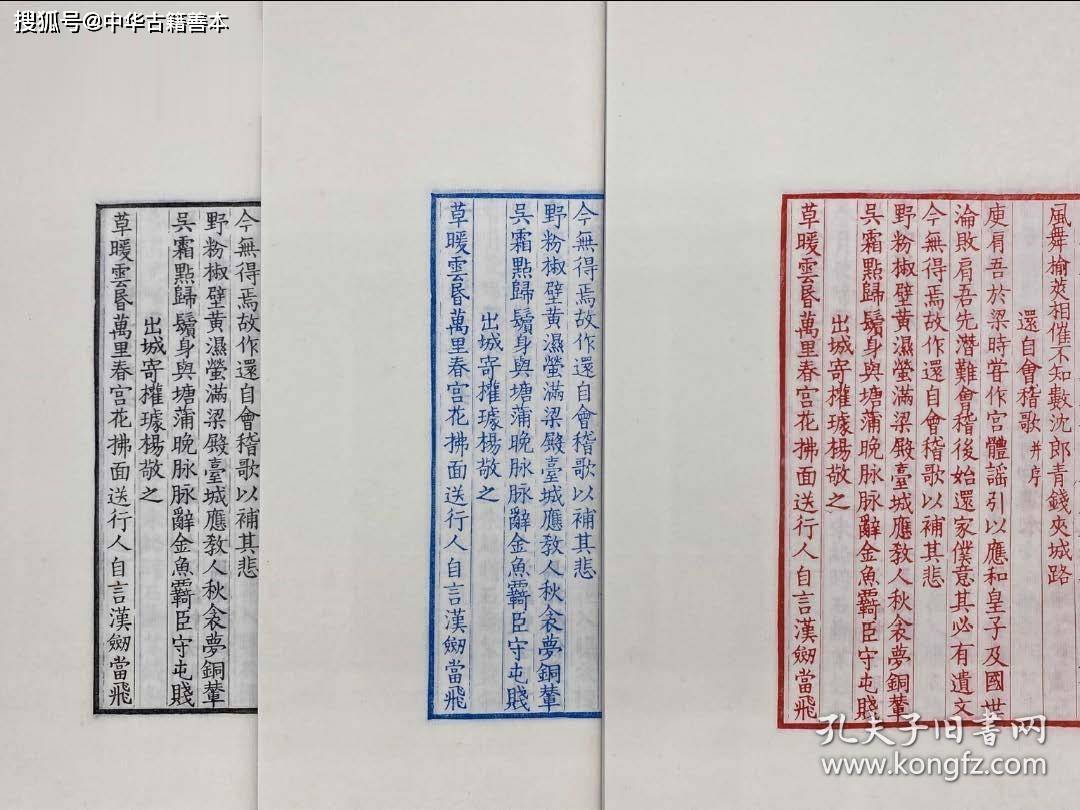 搜狐号@中华古籍善本
風舞榆莢相催不知數沈郎青錢夾城路
還自會稽歌 并序
庾肩吾於梁時甞作宫體謡引以應和皇子及國世
淪敗肩吾先潛難會稽後始還家僕意其必有遺文
今無得焉故作還自會稽歌以補其悲
野粉椒壁黄濕螢滿梁殿臺城應敎人秋衾夢銅輦
吳霜點歸鬢身與塘蒲晚脉脉辭金魚覊臣守屯賤
出城寄權璩楊敬之
草暖雲昬萬里春宫花拂面送行人自言漢劒當飛
今無得焉故作還自會稽歌以補其悲
野粉椒壁黄濕螢滿梁殿臺城應敎人秋衾夢銅輦
吳霜點歸鬢身與塘蒲晚脉脉辭金魚覊臣守屯賤
出城寄權璩楊敬之
草暖雲昬萬里春宫花拂面送行人自言漢劒當飛
今無得焉故作還自會稽歌以補其悲
野粉椒壁黄濕螢滿梁殿臺城應敎人秋衾夢銅輦
吳霜點歸鬢身與塘蒲晚脉脉辭金魚覊臣守屯賤
出城寄權璩楊敬之
草暖雲昬萬里春宫花拂面送行人自言漢劒當飛
孔夫子旧书网
www.kongfz.com